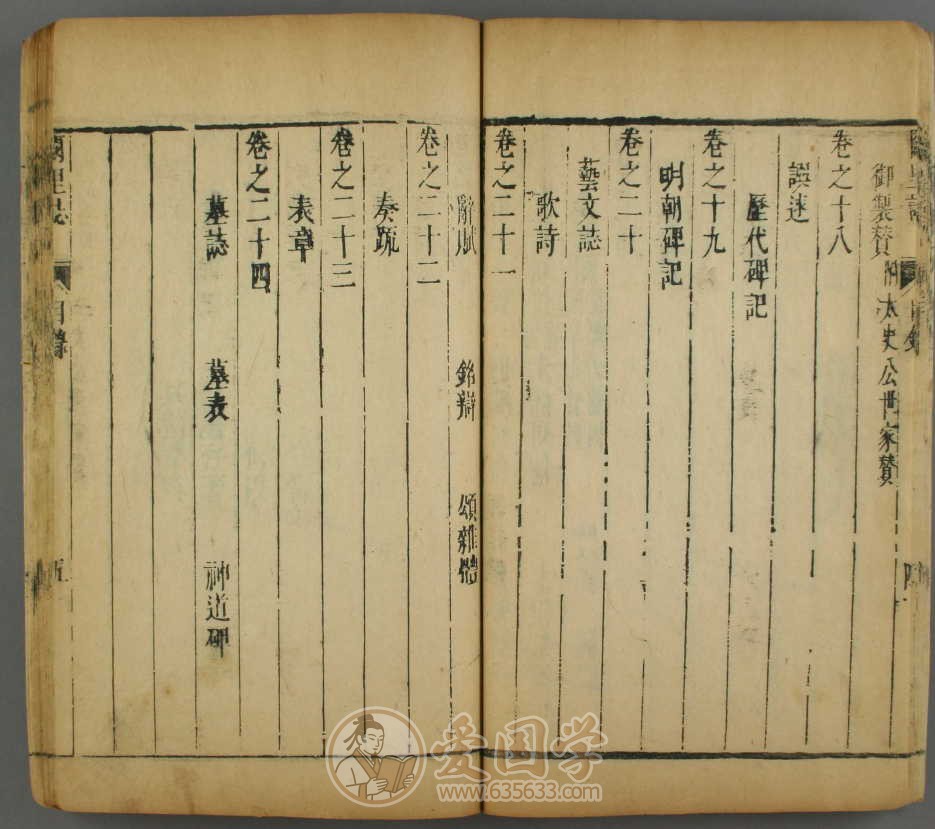 御製贊 附太史公世家贊
卷之十八
譔述
歷代碑記
卷之十九
明朝碑記
卷之二十
藝文誌
歌詩
卷之二十一
辭賦 銘辯 頌雜體
卷之二十二
奏疏
卷之二十三
表章
卷之二十四
墓誌 墓表 神道碑
闕里誌 目錄 五
爱国学
www.635633.com